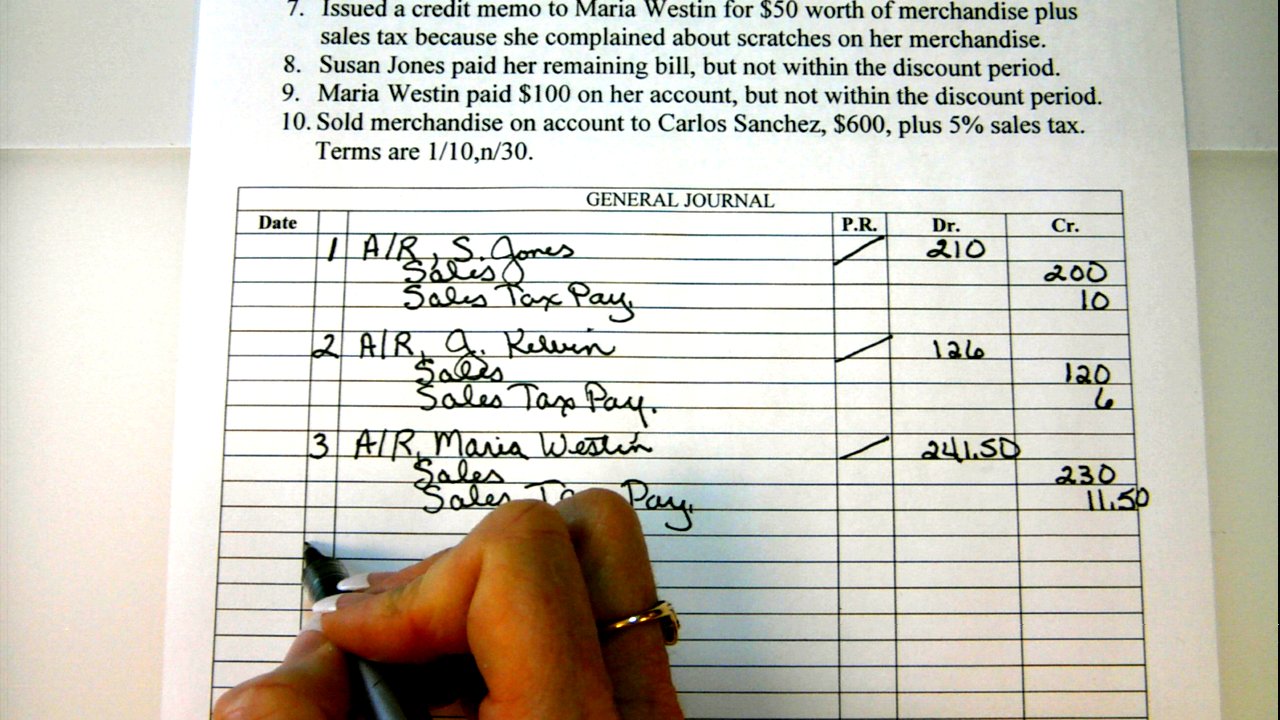 7. Issued a credit memo to Maria Westin for $50 worth of merchandise plus
sales tax because she complained about scratches on her merchandise.
8. Susan Jones paid her remaining bill, but not within the discount period.
9. Maria Westin paid $100 on her account, but not within the discount period.
10. Sold merchandise on account to Carlos Sanchez, $600, plus 5% sales tax.
Terms are 1/10,n/30.
GENERAL JOURNAL
Date P.R. Dr. Cr.
1 A/R, S. Jones 210
Sales 200
Sales Tax Pay. 10
2 A/R, J. Kelvin 126
Sales 120
Sales Tax Pay. 6
3 A/R, Maria Westin 241.50
Sales 230
Sales Tax Pay. 11.50